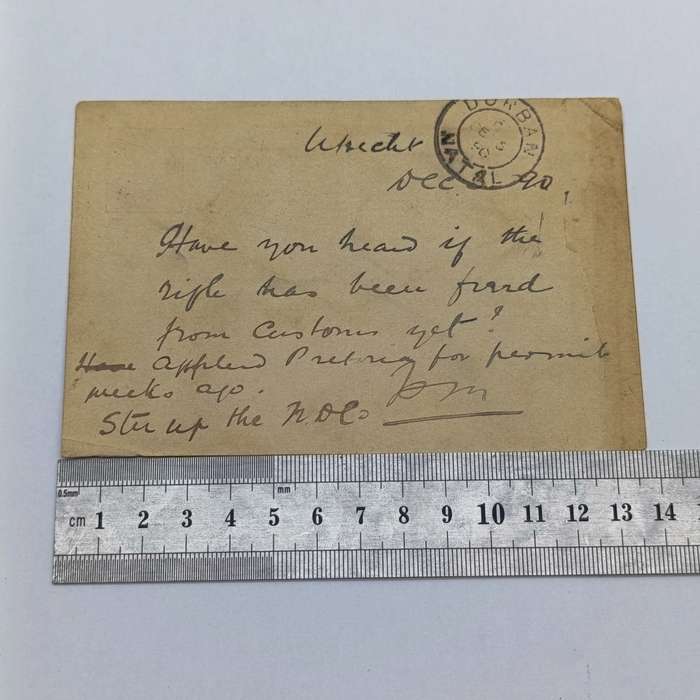 Utrecht
Dec 90.
DURBAN
NATAL
DE
90
Have you heard if the
rifle has been
from Customs yet?
Have applied Pretoria for permit
weeks ago.
Stir up the N D Co
0.5mm mm
cm 1 2 3 4 5 6 7 8 9 10 11 12 13 14